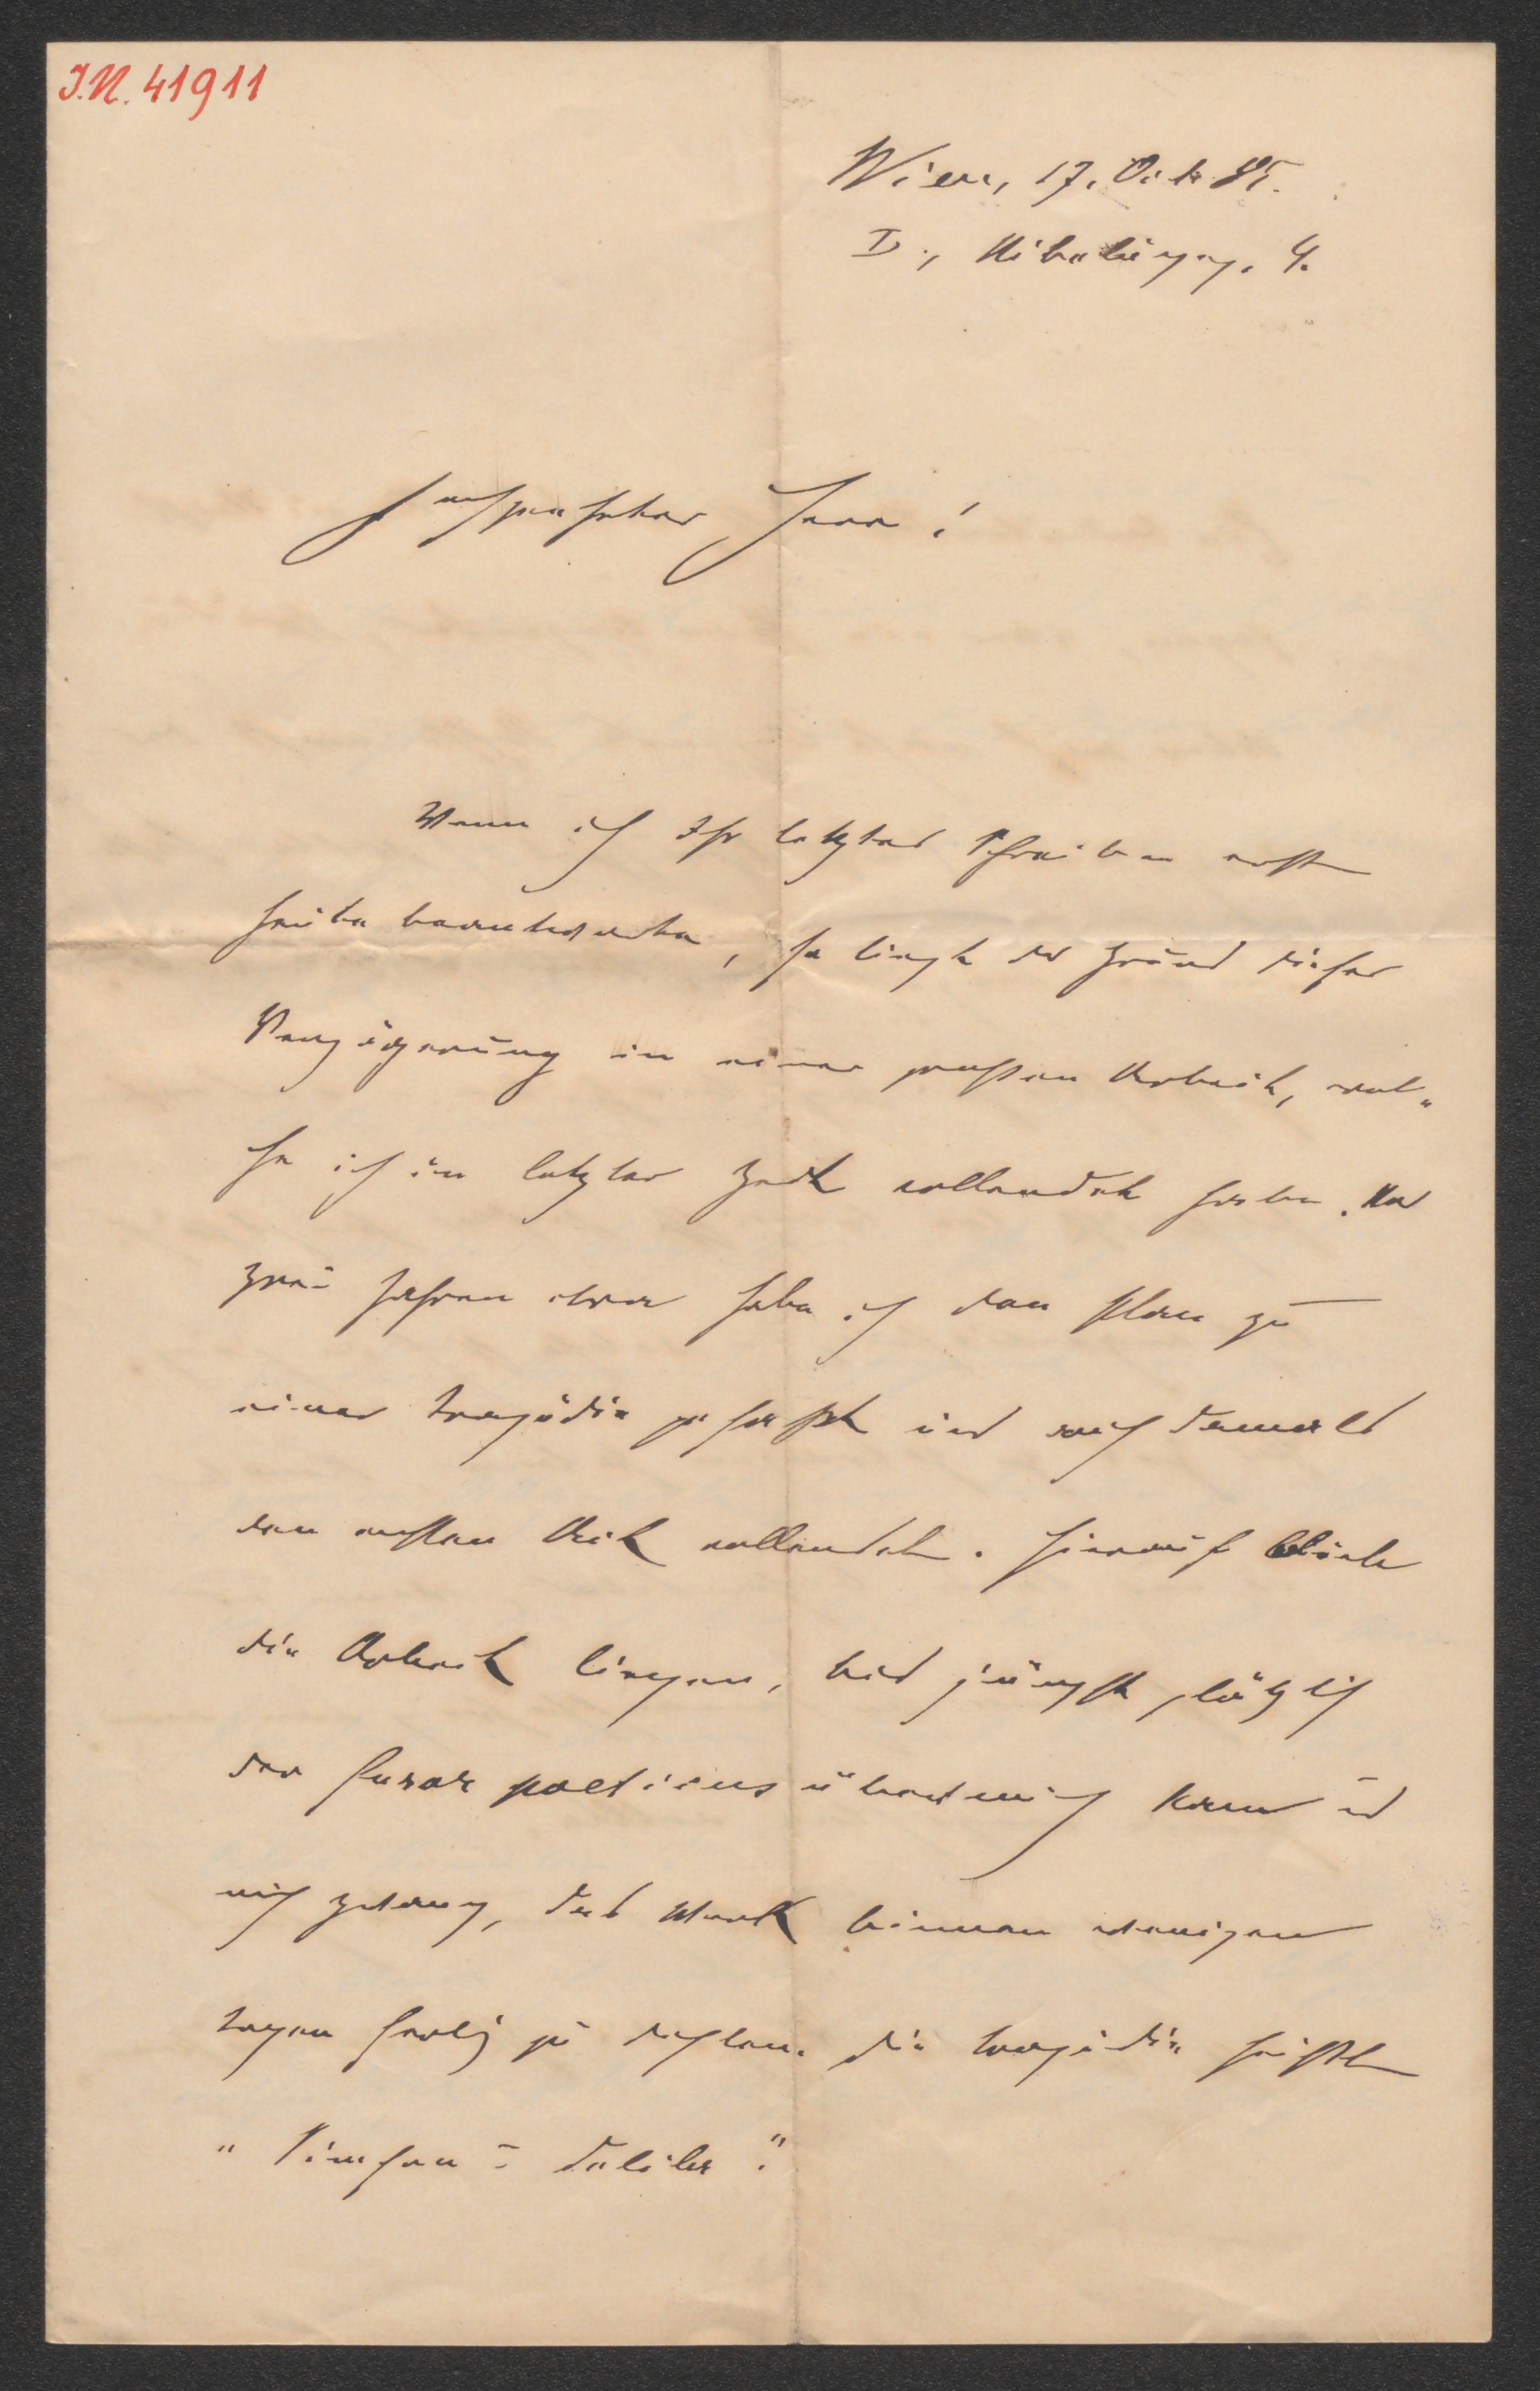 I.N. 41911
Wien, 17. Okt. 85.
I., Nibelungg. 4.
Hochgeehrter Herr!
Wenn ich Ihr letztes Schreiben erst
heute beantworte, so liegt der Grund dieser
Verzögerung in einer großen Arbeit, wel-
che ich in letzter Zeit vollendet habe. Vor
zwei Jahren etwa habe ich den Plan zu
einer Tragödie gefaßt und auch damals
den ersten Akt vollendet. Hierauf blieb
die Arbeit liegen, bis jüngst plötzlich
der furor poeticus über mich kam und
mich zwang, das Werk binnen wenigen
Tagen fertig zu dichten. Die Tragödie heißt
"Simson u. Delila".